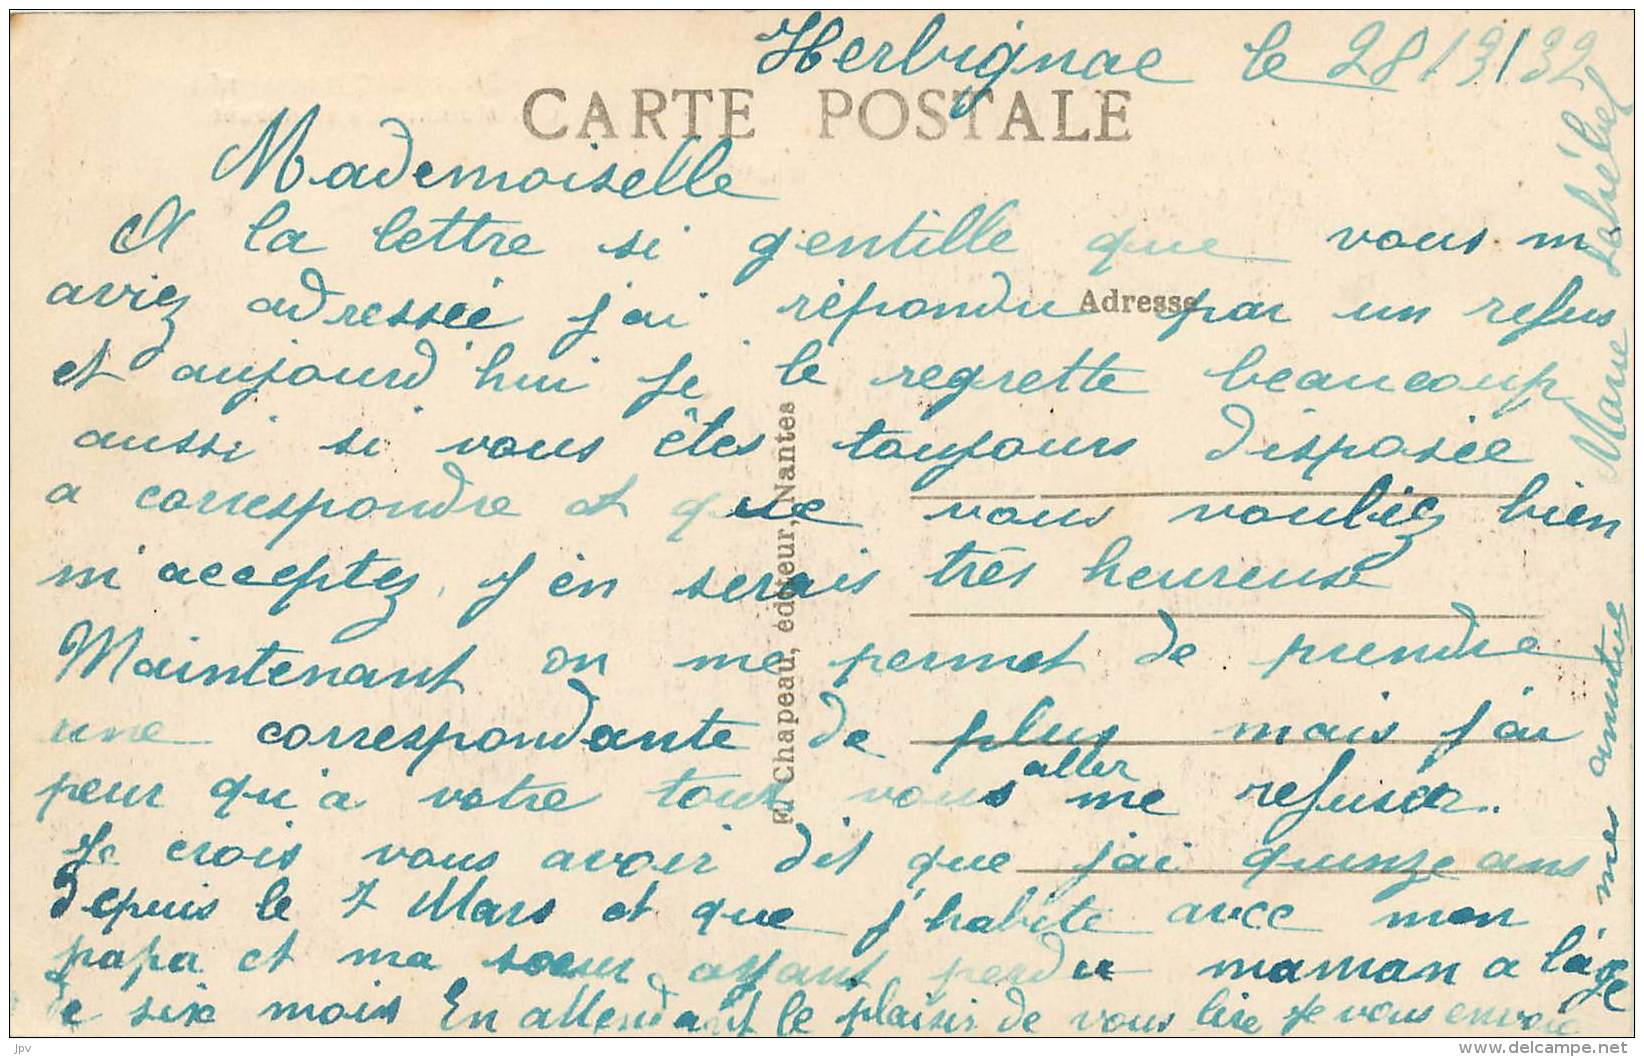 Herbignac le 28/3/32
CARTE POSTALE
Mademoiselle
A la lettre si gentille que vous m
aviez adressée j'ai répondu par un refus
Adresse
et aujourd'hui je le regrette beaucoup
aussi si vous êtes toujours disposée
a correspondre et que vous vouliez bien
m'acceptez, j'en serais très heureuse
Maintenant on me permet de prendre
une correspondante de plus mais j'ai
peur qu'a votre tour vous aller me refuser..
Je crois vous avoir dit que j'ai quinze ans
depuis le 7 Mars et que j'habite avec mon
papa et ma soeur, ayant perdu maman a l'âge
de six mois En attendant le plaisir de vous lire je vous envoie
mes amitiés
Marie
Chapeau, éditeur, Nantes
jpv
www.delcampe.net